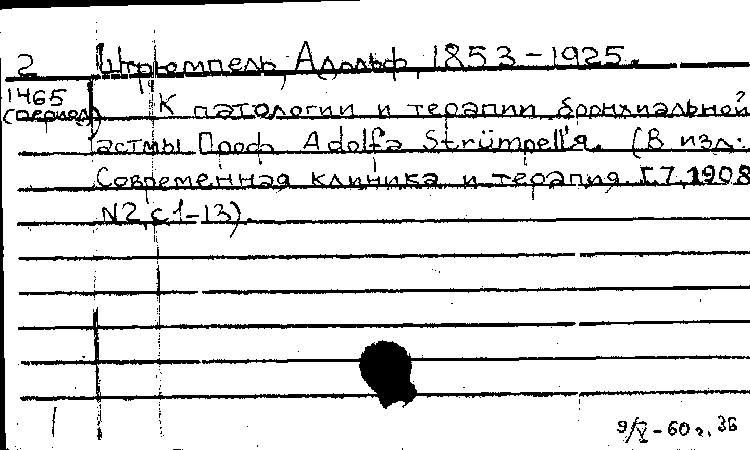 2 Штрюмпель, Адольф, 1853-1925.
1465
(период) К патологии и терапии бронхиальной
астмы Проф. Adolf'a Strümpell'я. (В изд.:
Современная клиника и терапия. Т.7, 1908
N2, с 1-13).
9/V-60 г. ЗБ